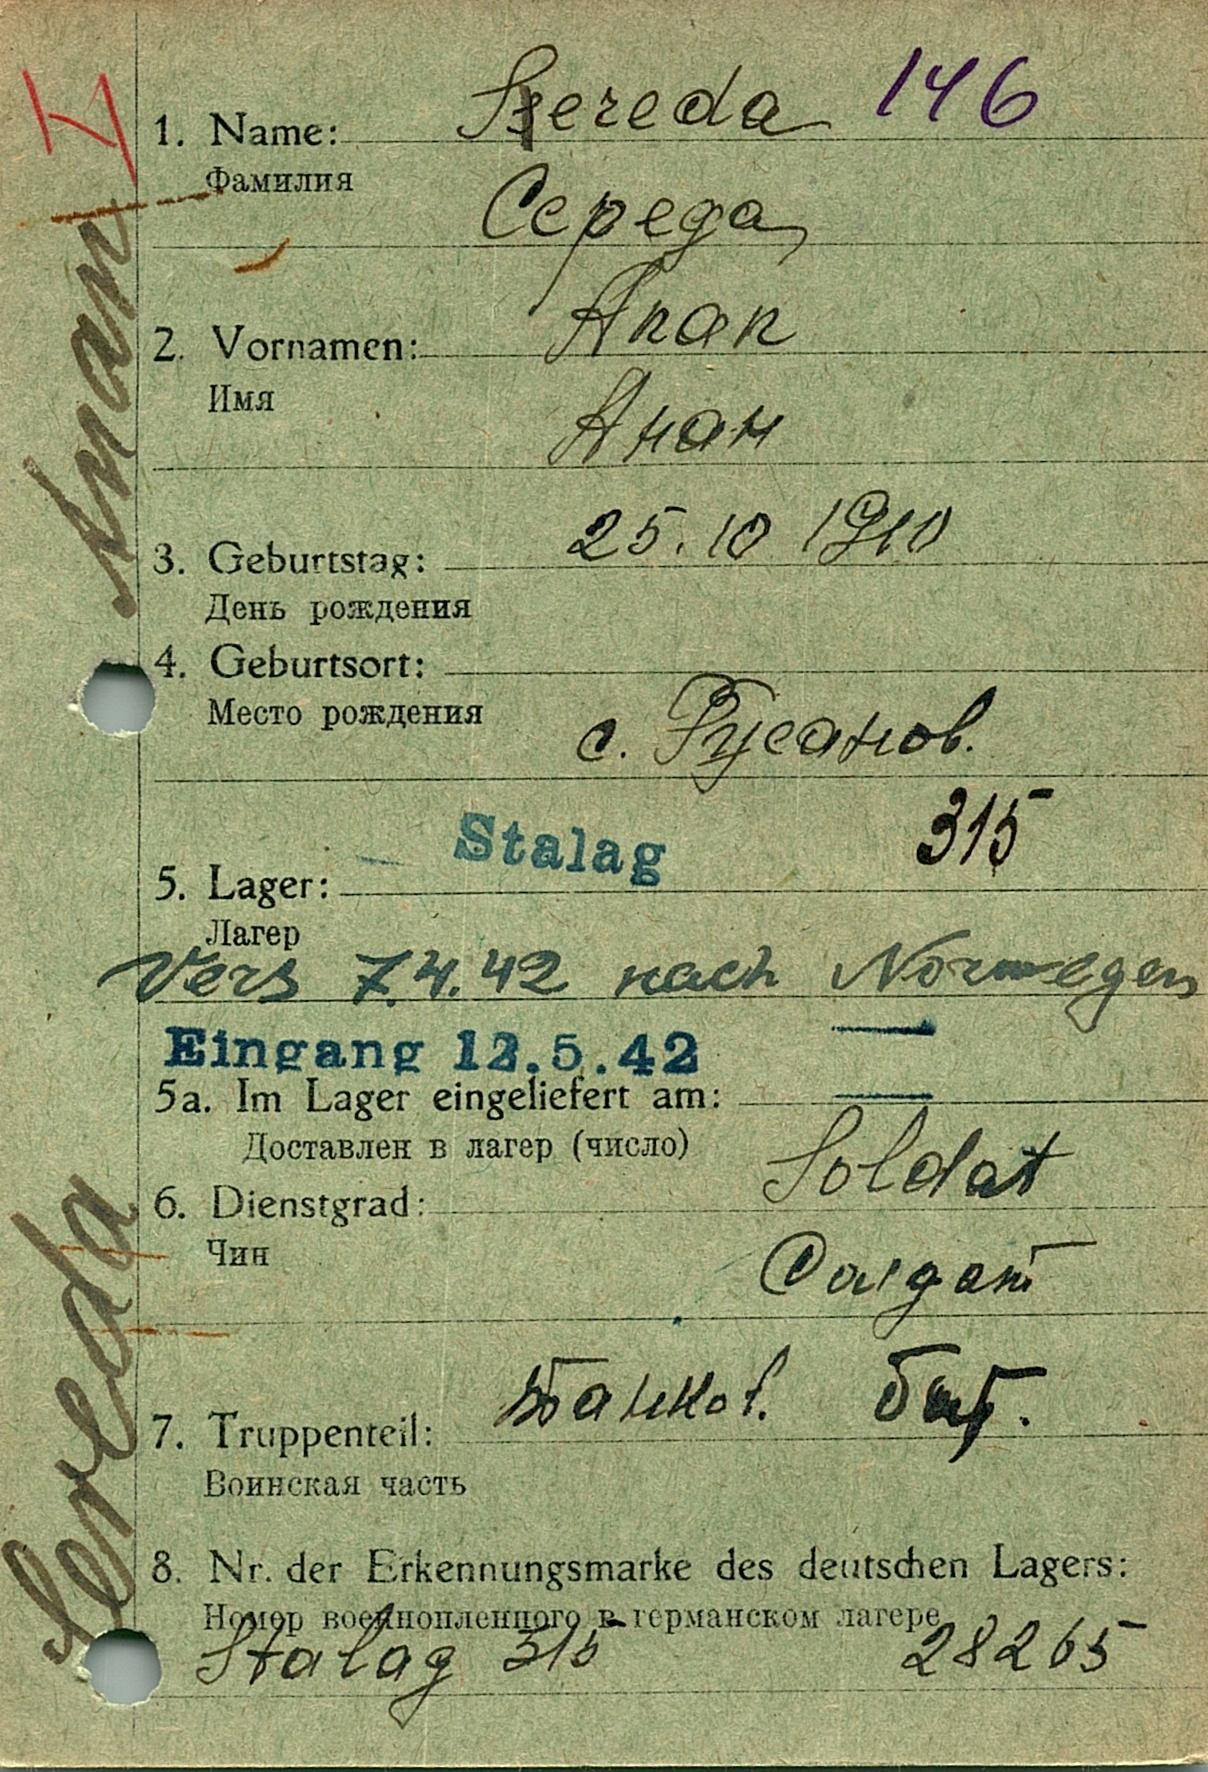 Sereda 146
1. Name:
Фамилия
Середа
Anan
2. Vornamen:
Имя
Анан
25.10 1910
3. Geburtstag:
День рождения
4. Geburtsort:
Место рождения
с. Русанов.
Stalag 315
5. Lager:
Лагер
Vers 7.4.42 nach Norwegen
Eingang 12.5.42
5a. Im Lager eingeliefert am:
Доставлен в лагер (число)
Soldat
6. Dienstgrad:
Чин
Солдат
Танков. бат.
7. Truppenteil:
Воинская часть
8. Nr. der Erkennungsmarke des deutschen Lagers:
Номер военнопленного в германском лагере
Stalag 315 28265
Sereda Anan